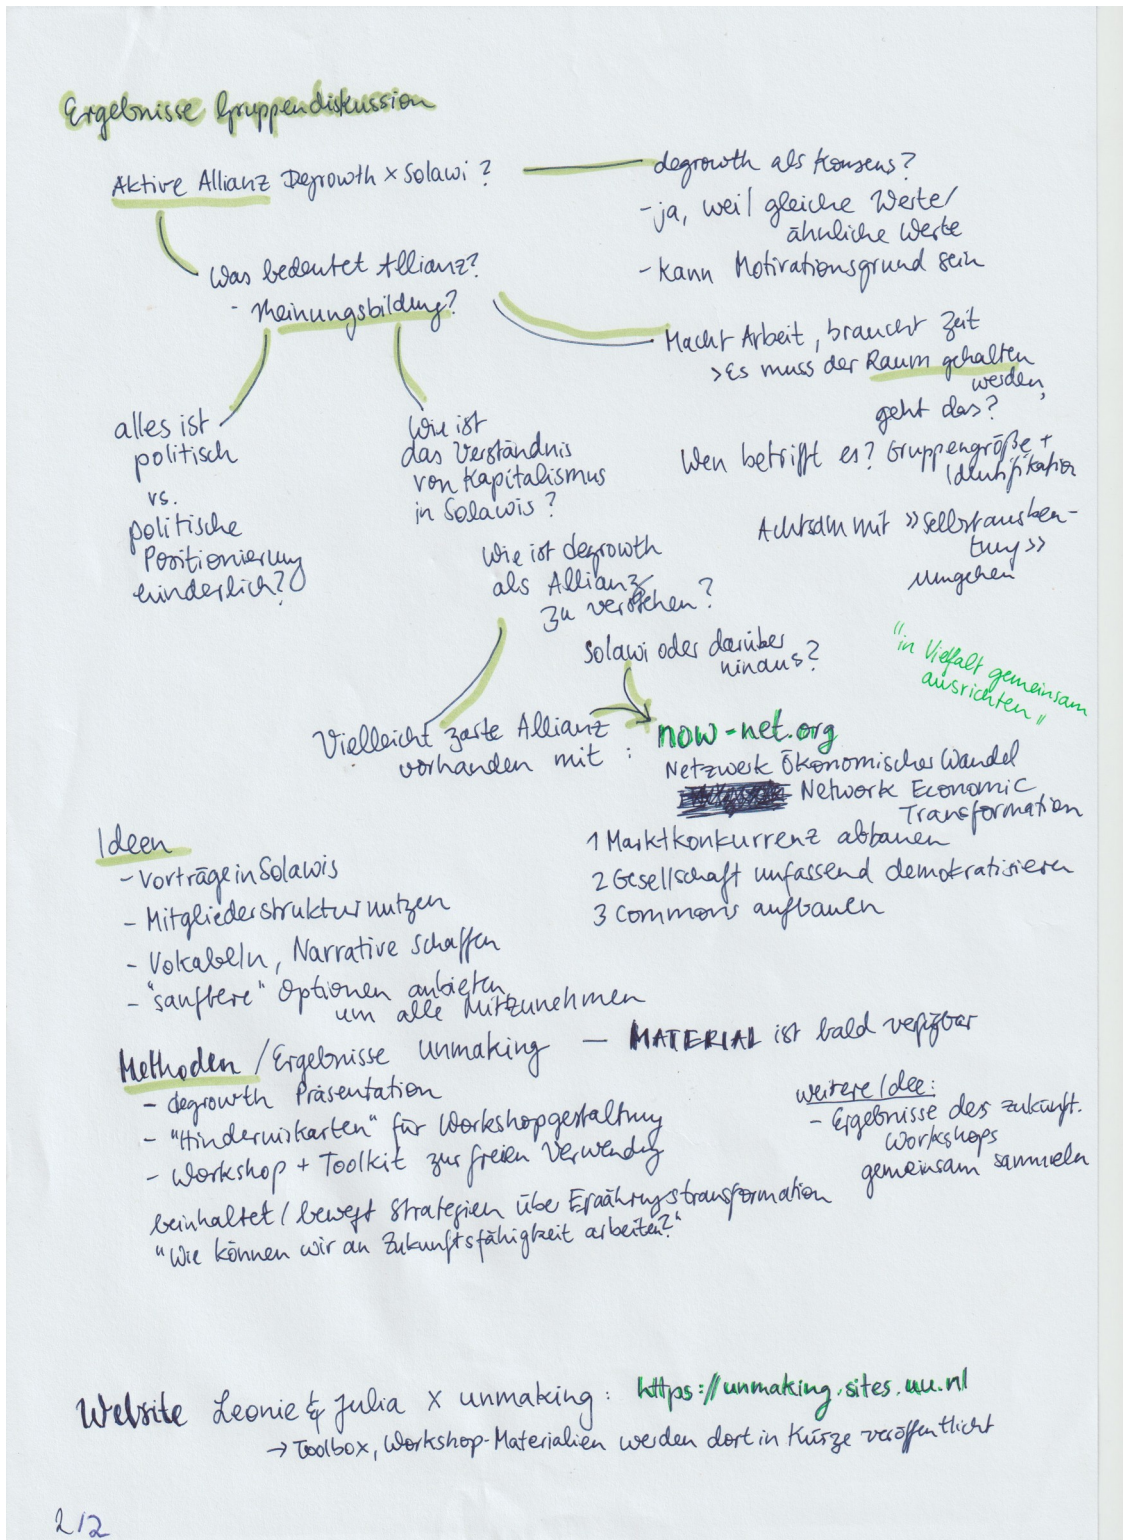 Ergebnisse Gruppendiskussion
Aktive Allianz Degrowth x Solawi?
degrowth als Konsens?
- ja, weil gleiche Werte/
ähnliche Werte
- kann Motivationsgrund sein
Was bedeutet Allianz?
- Meinungsbildung?
Macht Arbeit, braucht Zeit
> Es muss der Raum gehalten
werden,
geht das?
Wen betrifft es? Gruppengröße +
Identifikation
Achtsam mit »Selbstausbeu-
tung»
umgehen
alles ist
politisch
vs.
politische
Positionierung
hinderlich?
Wie ist
das Verständnis
von Kapitalismus
in Solawis?
Wie ist degrowth
als Allianz
zu verstehen?
Solawi oder darüber
hinaus?
"in Vielfalt gemeinsam
ausrichten"
Vielleicht zarte Allianz
vorhanden mit :
now-net.org
Netzwerk Ökonomischer Wandel
Network Economic
Transformation
1 Marktkonkurrenz abbauen
2 Gesellschaft umfassend demokratisieren
3 Commons aufbauen
Ideen
- Vorträge in Solawis
- Mitgliederstruktur nutzen
- Vokabeln, Narrative schaffen
- "sanftere" Optionen anbieten,
um alle Mitzunehmen
Methoden / Ergebnisse unmaking — MATERIAL ist bald verfügbar
- degrowth Präsentation
- "Hinderniskarten" für Workshopgestaltung
- Workshop + Toolkit zur freien Verwendung
beinhaltet / bewegt Strategien über Ernährungstransformation
"Wie können wir an Zukunftsfähigkeit arbeiten?"
weitere Idee:
- Ergebnisse der zukunft.
Workshops
gemeinsam sammeln
Website Leonie & Julia x unmaking: https://unmaking.sites.uu.nl
→ Toolbox, Workshop-Materialien werden dort in Kürze veröffentlicht
2/2